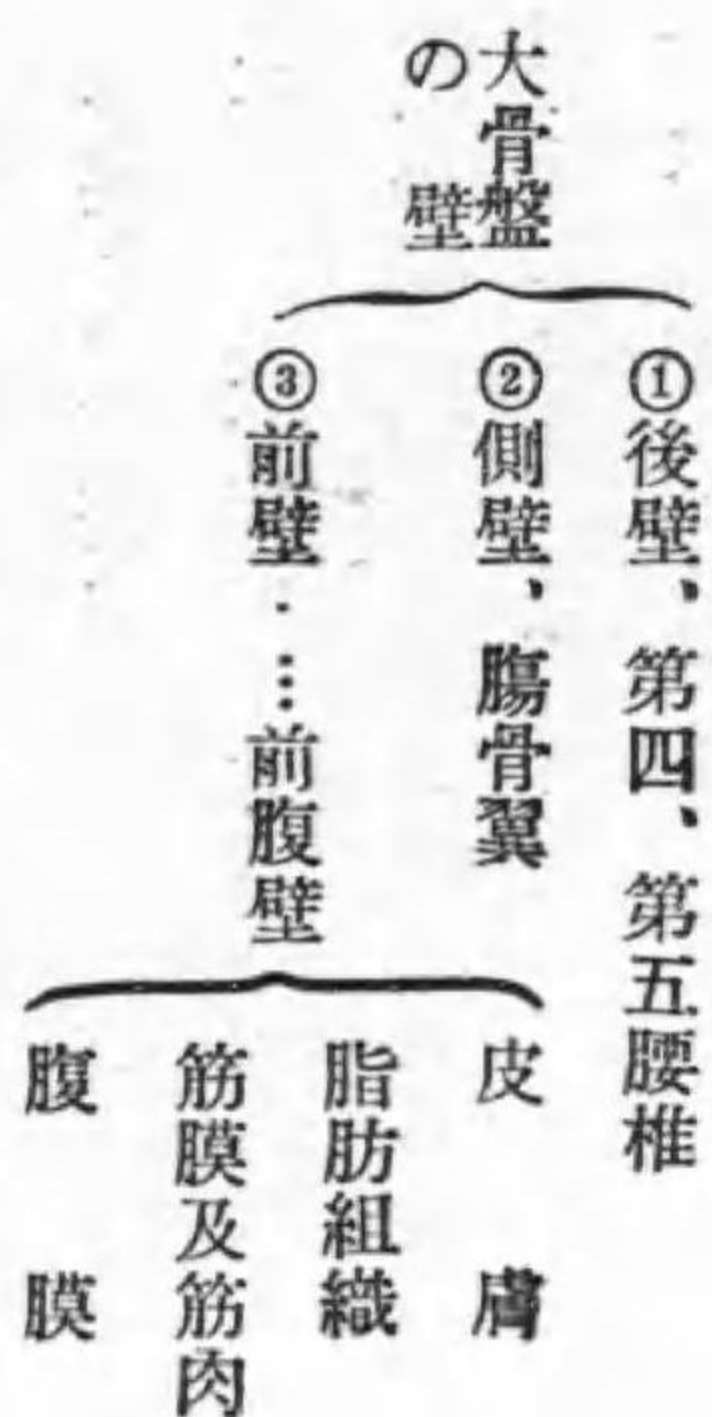 大骨盤
の壁
①後壁、第四、第五腰椎
②側壁、腸骨翼
③前壁……前腹壁
皮膚
脂肪組織
筋膜及筋肉
腹膜